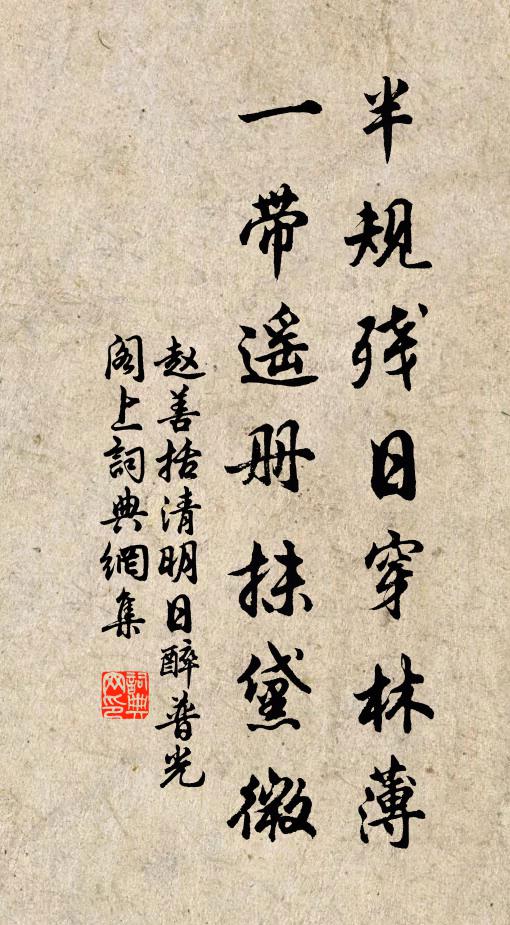 半规残日穿林薄
一带遥册抹黛微
赵善括清明日醉普光
阁上詞典網集
詞典網印